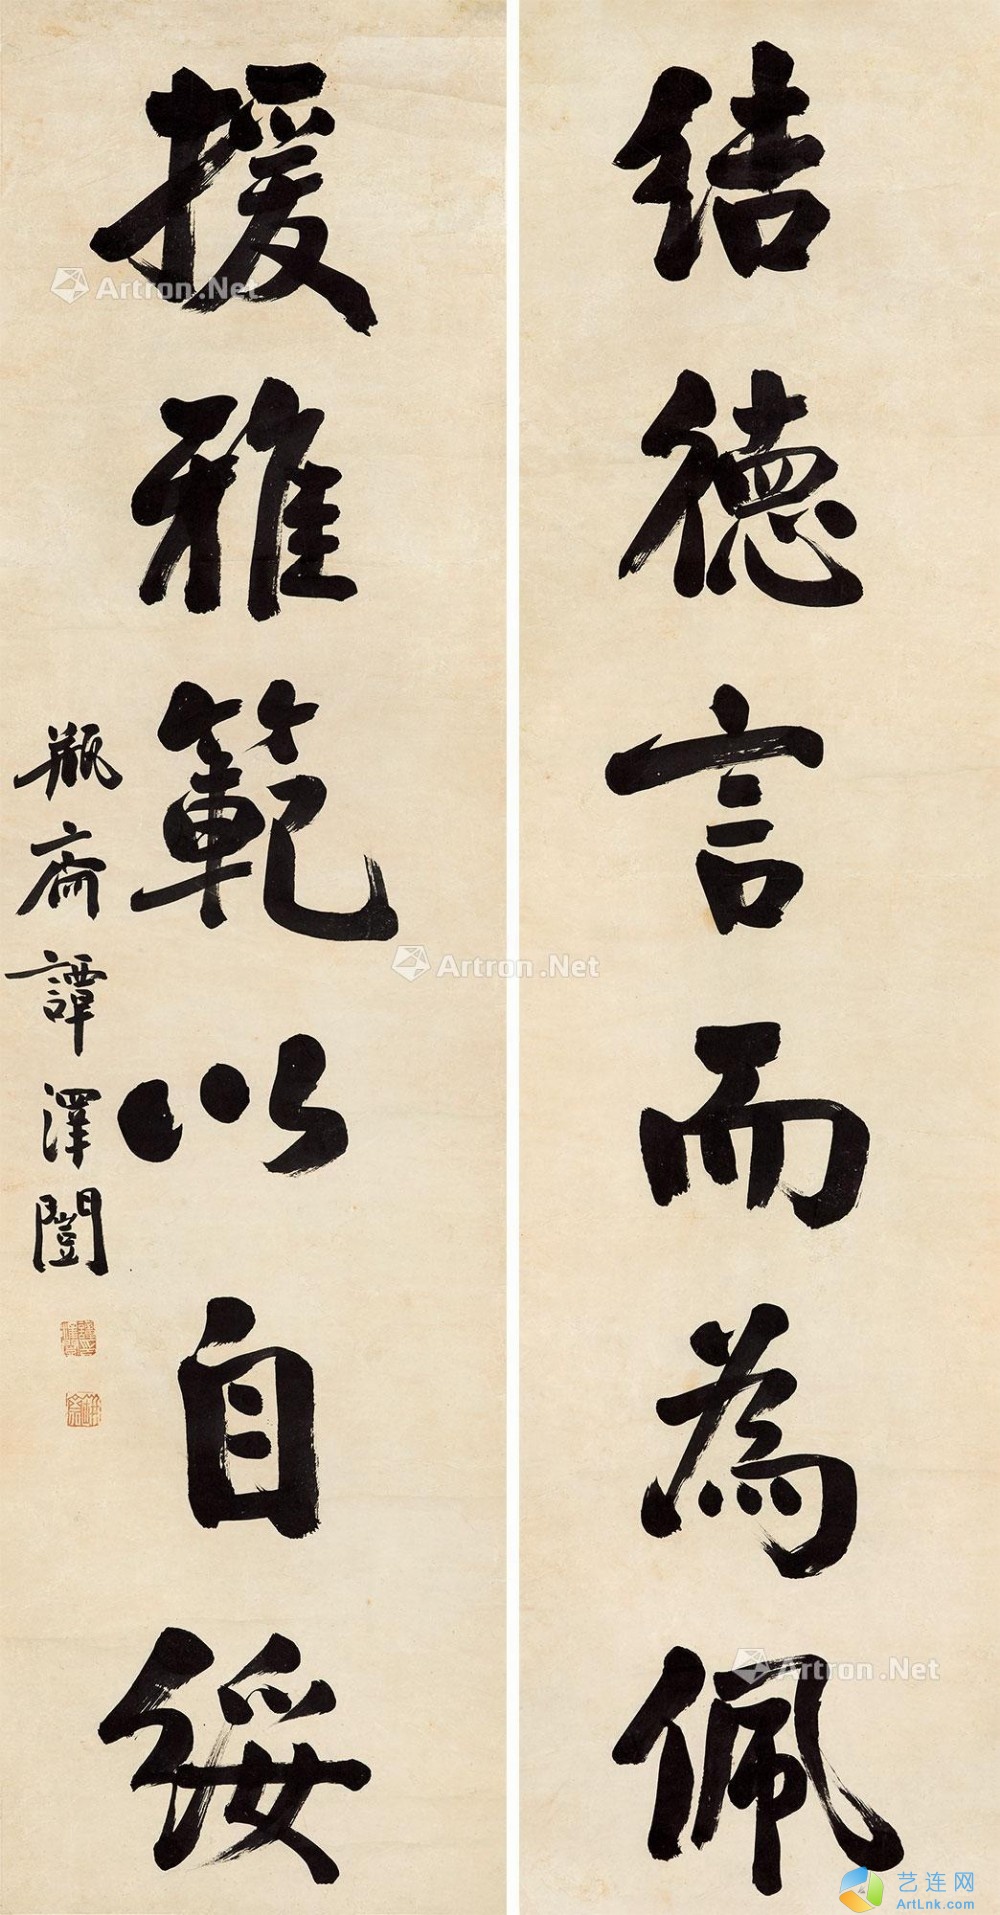 结德言而為佩
援雅範以自綏
瓶齋譚澤闓
Artron.Net
Artron.Net
Artron.Net
艺连网
ArtLnk.com